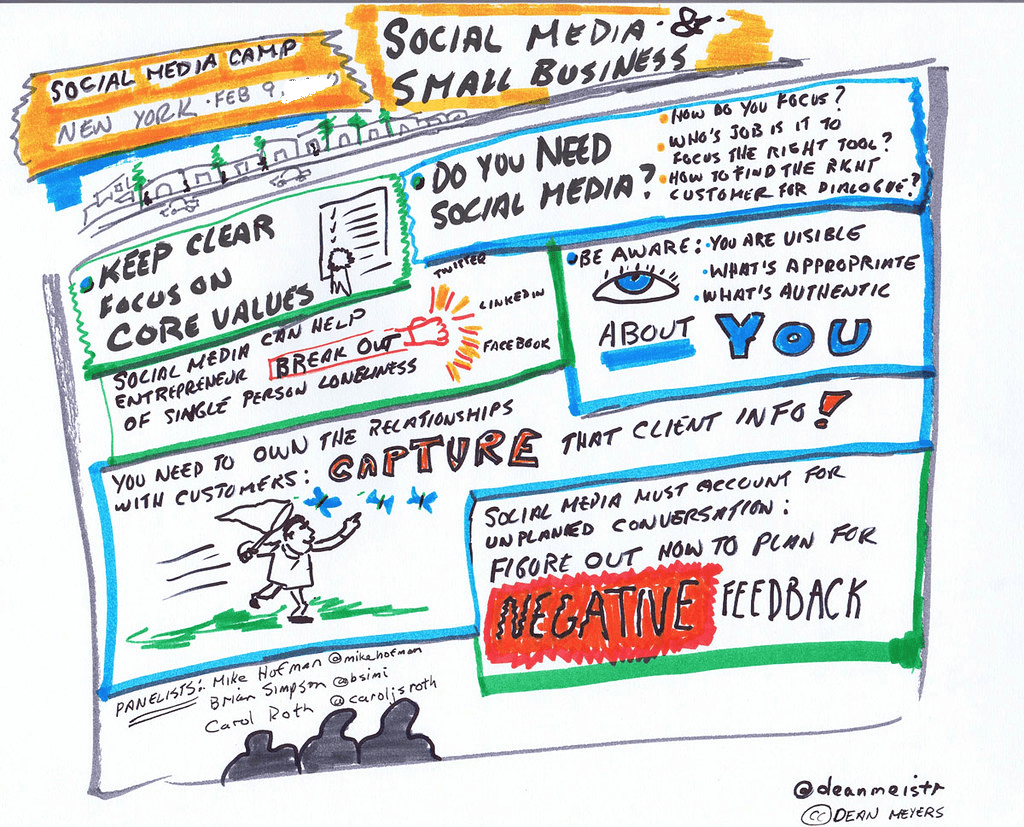 SOCIAL MEDIA CAMP
NEW YORK · FEB 9,
SOCIAL MEDIA &
SMALL BUSINESS
• DO YOU NEED
SOCIAL MEDIA?
• HOW DO YOU FOCUS?
• WHO'S JOB IS IT TO
FOCUS THE RIGHT TOOL?
• HOW TO FIND THE RIGHT
CUSTOMER FOR DIALOGUE?
• KEEP CLEAR
FOCUS ON
CORE VALUES
• BE AWARE: • YOU ARE VISIBLE
• WHAT'S APPROPRIATE
• WHAT'S AUTHENTIC
ABOUT YOU
SOCIAL MEDIA CAN HELP
ENTREPRENEUR BREAK OUT
OF SINGLE PERSON LONELINESS
TWITTER
LINKEDIN
FACEBOOK
YOU NEED TO OWN THE RELATIONSHIPS
WITH CUSTOMERS: CAPTURE THAT CLIENT INFO!
SOCIAL MEDIA MUST ACCOUNT FOR
UNPLANNED CONVERSATION:
FIGURE OUT HOW TO PLAN FOR
NEGATIVE FEEDBACK
PANELISTS: Mike Hofman @mikehofman
Brian Simpson @bsimi
Carol Roth @caroljsroth
@deanmeistr
(cc) DEAN MEYERS